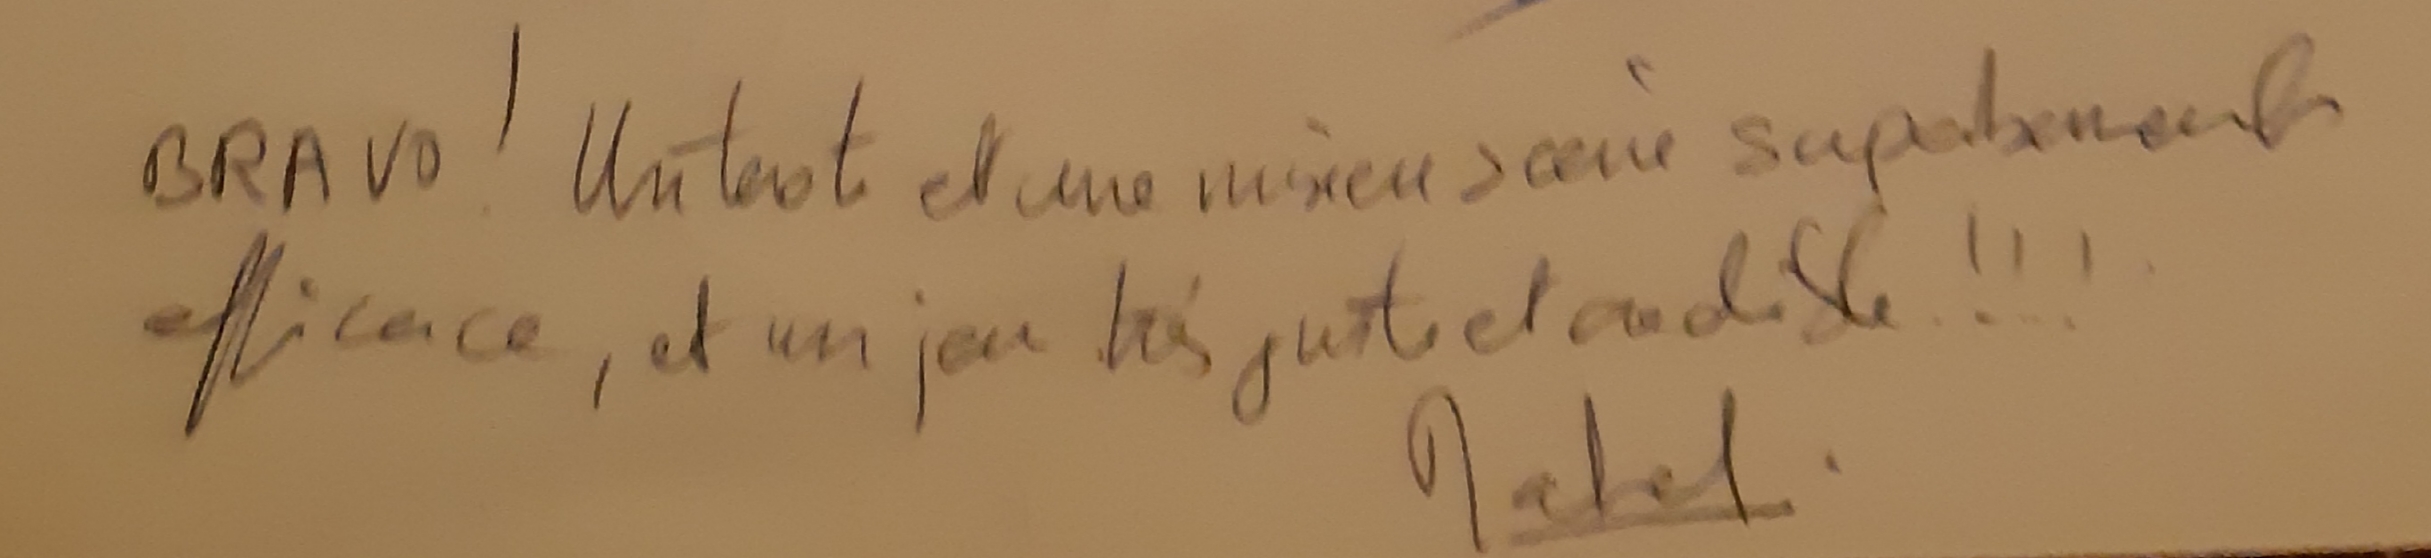 BRAVO ! Un texte et une mise en scène superbement
efficace, et un jeu très juste et audible !!!